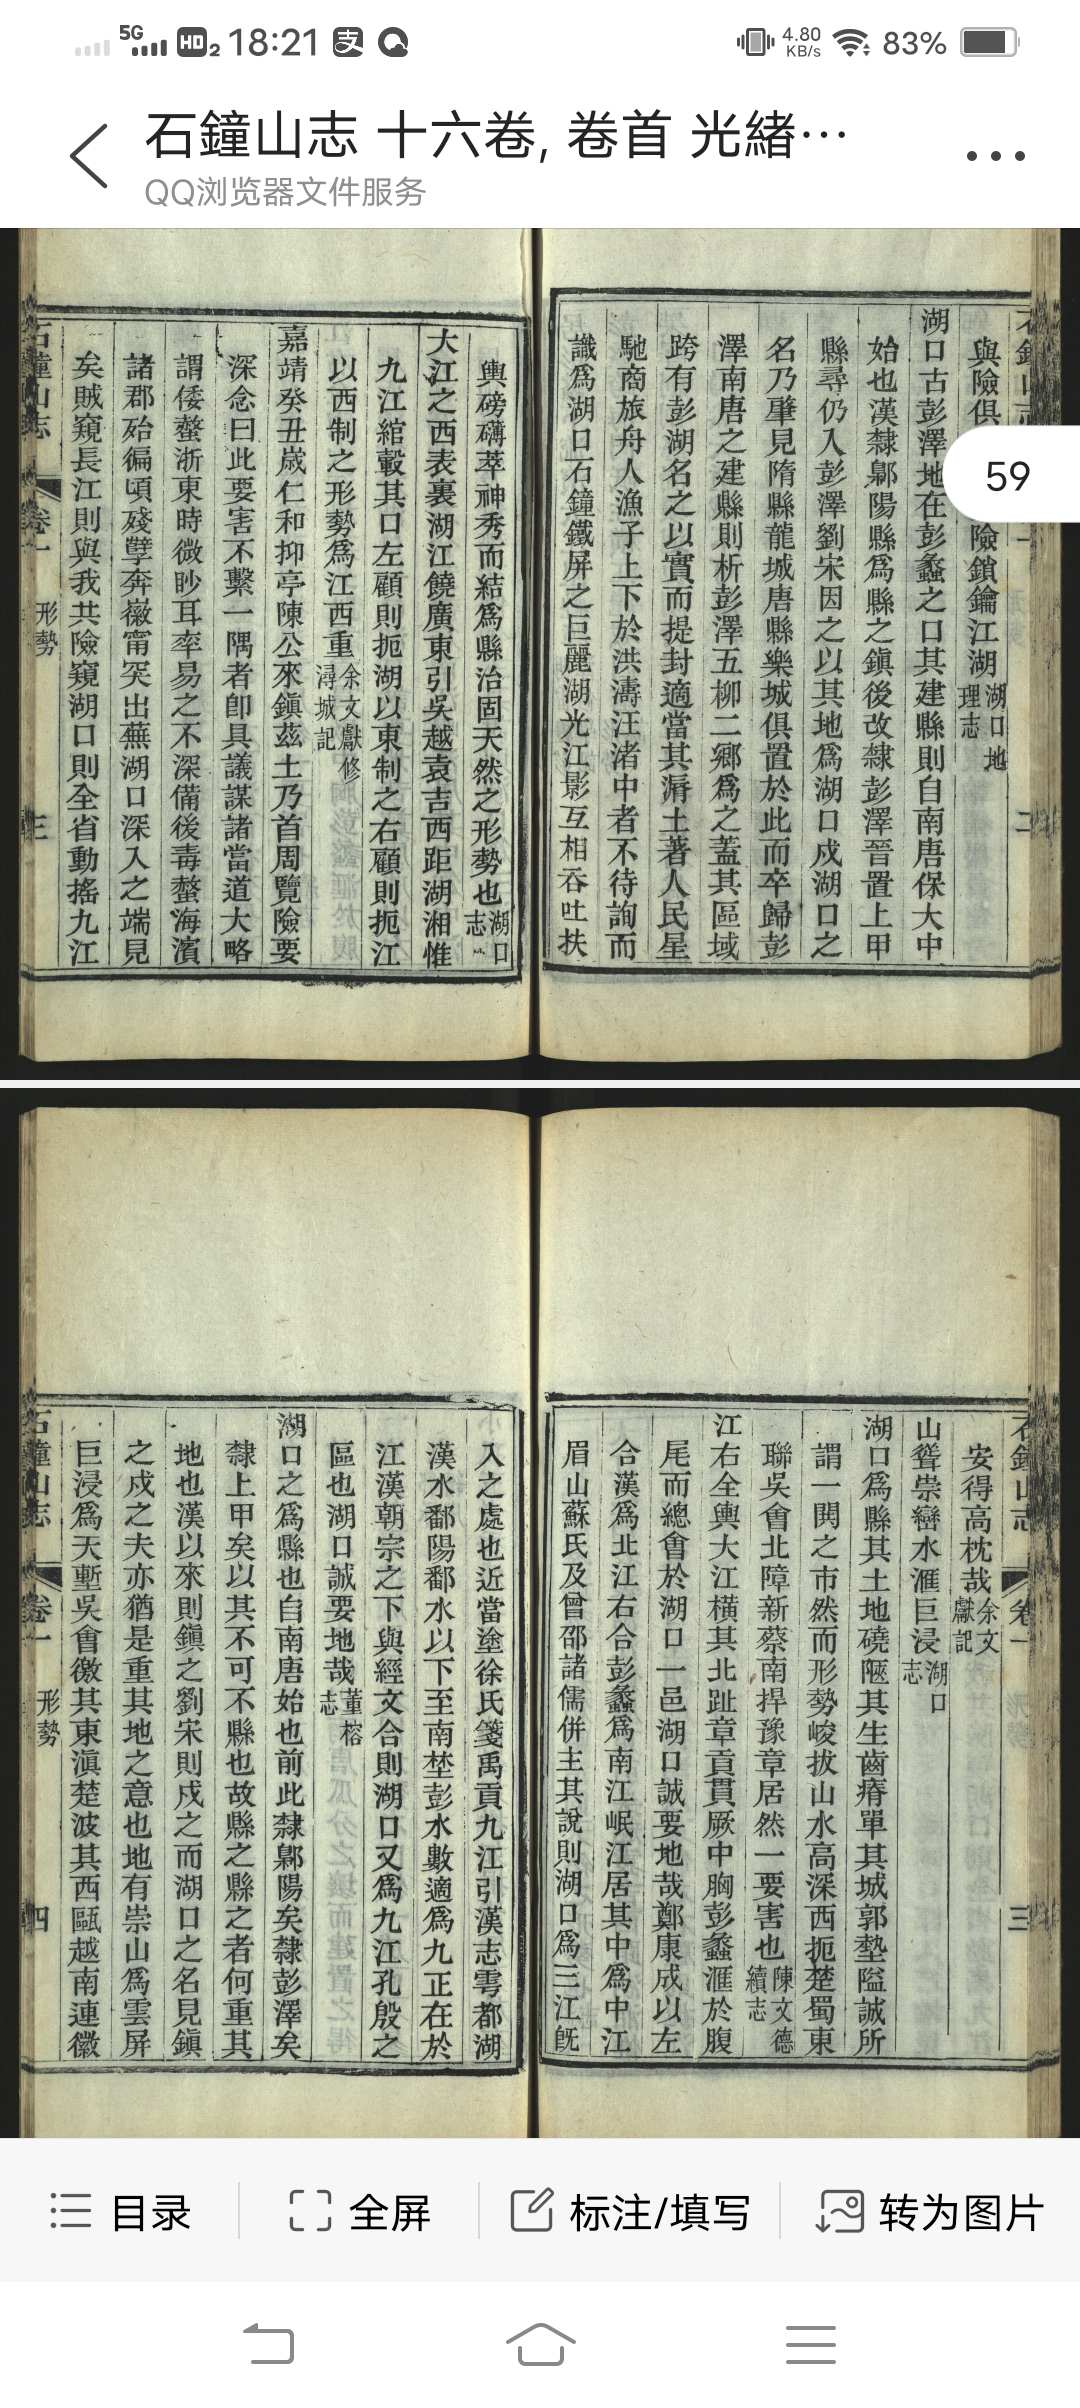 5G HD 2 18:21 支 4.80 KB/s 83%
石鐘山志 十六卷, 卷首 光緒…
QQ浏览器文件服务
59
與險俱
險鎖鑰江湖湖口地理志
湖口古彭澤地在彭蠡之口其建縣則自南唐保大中
始也漢隸鄡陽縣爲縣之鎮後改隸彭澤晉置上甲
縣尋仍入彭澤劉宋因之以其地爲湖口戍湖口之
名乃肇見隋縣龍城唐縣樂城俱置於此而卒歸彭
澤南唐之建縣則析彭澤五柳二鄉爲之蓋其區域
跨有彭湖名之以實而提封適當其漘土著人民星
馳商旅舟人漁子上下於洪濤汪渚中者不待詢而
識爲湖口石鐘鐵屏之巨麗湖光江影互相吞吐扶
輿磅礴萃神秀而結爲縣治固天然之形勢也湖口志
大江之西表裏湖江饒廣東引吳越袁吉西距湖湘惟
九江綰轂其口左顧則扼湖以東制之右顧則扼江
以西制之形勢爲江西重余文獻修潯城記
嘉靖癸丑歲仁和抑亭陳公來鎮茲土乃首周覽險要
深念曰此要害不繫一隅者卽具議謀諸當道大略
謂倭螫浙東時微眇耳率易之不深備後毒螫海濱
諸郡殆徧頃殘孽奔徽甯突出蕪湖口深入之端見
矣賊窺長江則與我共險窺湖口則全省動搖九江
石鐘山志
卷一
形勢
三
安得高枕哉余文獻記
山聳崇巒水滙巨浸湖口志
湖口爲縣其土地磽陿其生齒瘠單其城郭墊隘誠所
謂一閧之市然而形勢峻拔山水高深西扼楚蜀東
聯吳會北障新蔡南捍豫章居然一要害也陳文德續志
江右全輿大江橫其北趾章貢貫厥中胸彭蠡滙於腹
尾而總會於湖口一邑湖口誠要地哉鄭康成以左
合漢爲北江右合彭蠡爲南江岷江居其中爲中江
眉山蘇氏及曾邵諸儒併主其說則湖口爲三江旣
入之處也近當塗徐氏箋禹貢九江引漢志雩都湖
漢水鄱陽鄱水以下至南埜彭水數適爲九正在於
江漢朝宗之下與經文合則湖口又爲九江孔殷之
區也湖口誠要地哉董榕志
湖口之爲縣也自南唐始也前此隸鄡陽矣隸彭澤矣
隸上甲矣以其不可不縣也故縣之縣之者何重其
地也漢以來則鎮之劉宋則戍之而湖口之名見鎮
之戍之夫亦猶是重其地之意也地有崇山爲雲屏
巨浸爲天塹吳會徼其東滇楚波其西甌越南連徽
石鐘山志
卷一
形勢
四
目录 全屏 标注/填写 转为图片